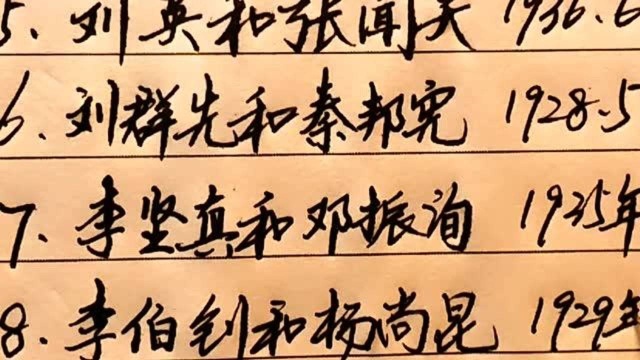 5. 刘英和张闻天 1936.6
6. 刘群先和秦邦宪 1928.5
7. 李坚真和邓振询 1935年
8. 李伯钊和杨尚昆 1929年